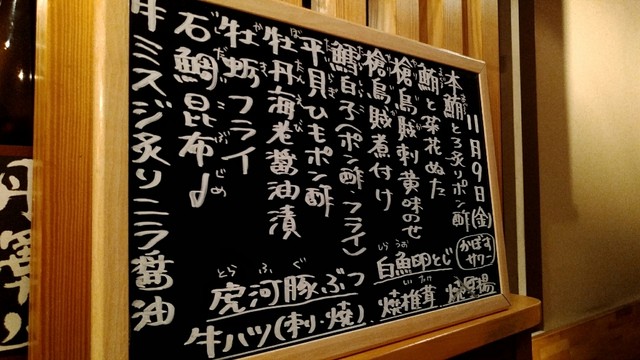 11月9日(金)
かぼすサワー
本鮪とろ炙りポン酢
鮪と菜花ぬた
槍烏賊刺黄味のせ
槍烏賊煮付け
鱈白子(ポン酢 フライ)
平貝ひもポン酢
牡丹海老醤油漬
牡蛎フライ
石鯛昆布〆
牛ミスジ炙りニラ醤油
白魚卵とじ
焼椎茸
虎河豚ぶつ
牛ハツ(刺・焼)